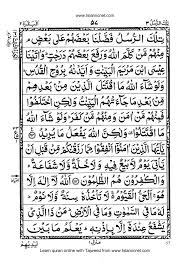 www.islamicnet.com
تلك الرسل ٣
٥٧
تِلْكَ الرُّسُلُ فَضَّلْنَا بَعْضَهُمْ عَلٰى بَعْضٍ
مِنْهُمْ مَّنْ كَلَّمَ اللّٰهُ وَرَفَعَ بَعْضَهُمْ دَرَجٰتٍ وَاٰتَيْنَا
عِيْسَى ابْنَ مَرْيَمَ الْبَيِّنٰتِ وَاَيَّدْنٰهُ بِرُوْحِ الْقُدُسِ
وَلَوْ شَآءَ اللّٰهُ مَا اقْتَتَلَ الَّذِيْنَ مِنْۢ بَعْدِهِمْ
مِّنْۢ بَعْدِ مَا جَآءَتْهُمُ الْبَيِّنٰتُ وَلٰكِنِ اخْتَلَفُوْا
فَمِنْهُمْ مَّنْ اٰمَنَ وَمِنْهُمْ مَّنْ كَفَرَ وَلَوْ شَآءَ اللّٰهُ
مَا اقْتَتَلُوْا وَلٰكِنَّ اللّٰهَ يَفْعَلُ مَا يُرِيْدُ يٰٓاَيُّهَا
الَّذِيْنَ اٰمَنُوْٓا اَنْفِقُوْا مِمَّا رَزَقْنٰكُمْ مِّنْ قَبْلِ اَنْ
يَّاْتِيَ يَوْمٌ لَّا بَيْعٌ فِيْهِ وَلَا خُلَّةٌ وَّلَا شَفَاعَةٌ
وَالْكٰفِرُوْنَ هُمُ الظّٰلِمُوْنَ اَللّٰهُ لَآ اِلٰهَ اِلَّا
هُوَ اَلْحَيُّ الْقَيُّوْمُ لَا تَاْخُذُهٗ سِنَةٌ وَّلَا نَوْمٌ لَهٗ
مَا فِي السَّمٰوٰتِ وَمَا فِي الْاَرْضِ مَنْ ذَا الَّذِيْ
يَشْفَعُ عِنْدَهٗٓ اِلَّا بِاِذْنِهٖ يَعْلَمُ مَا بَيْنَ
Learn quran online with Tajweed from www.islamicnet.com